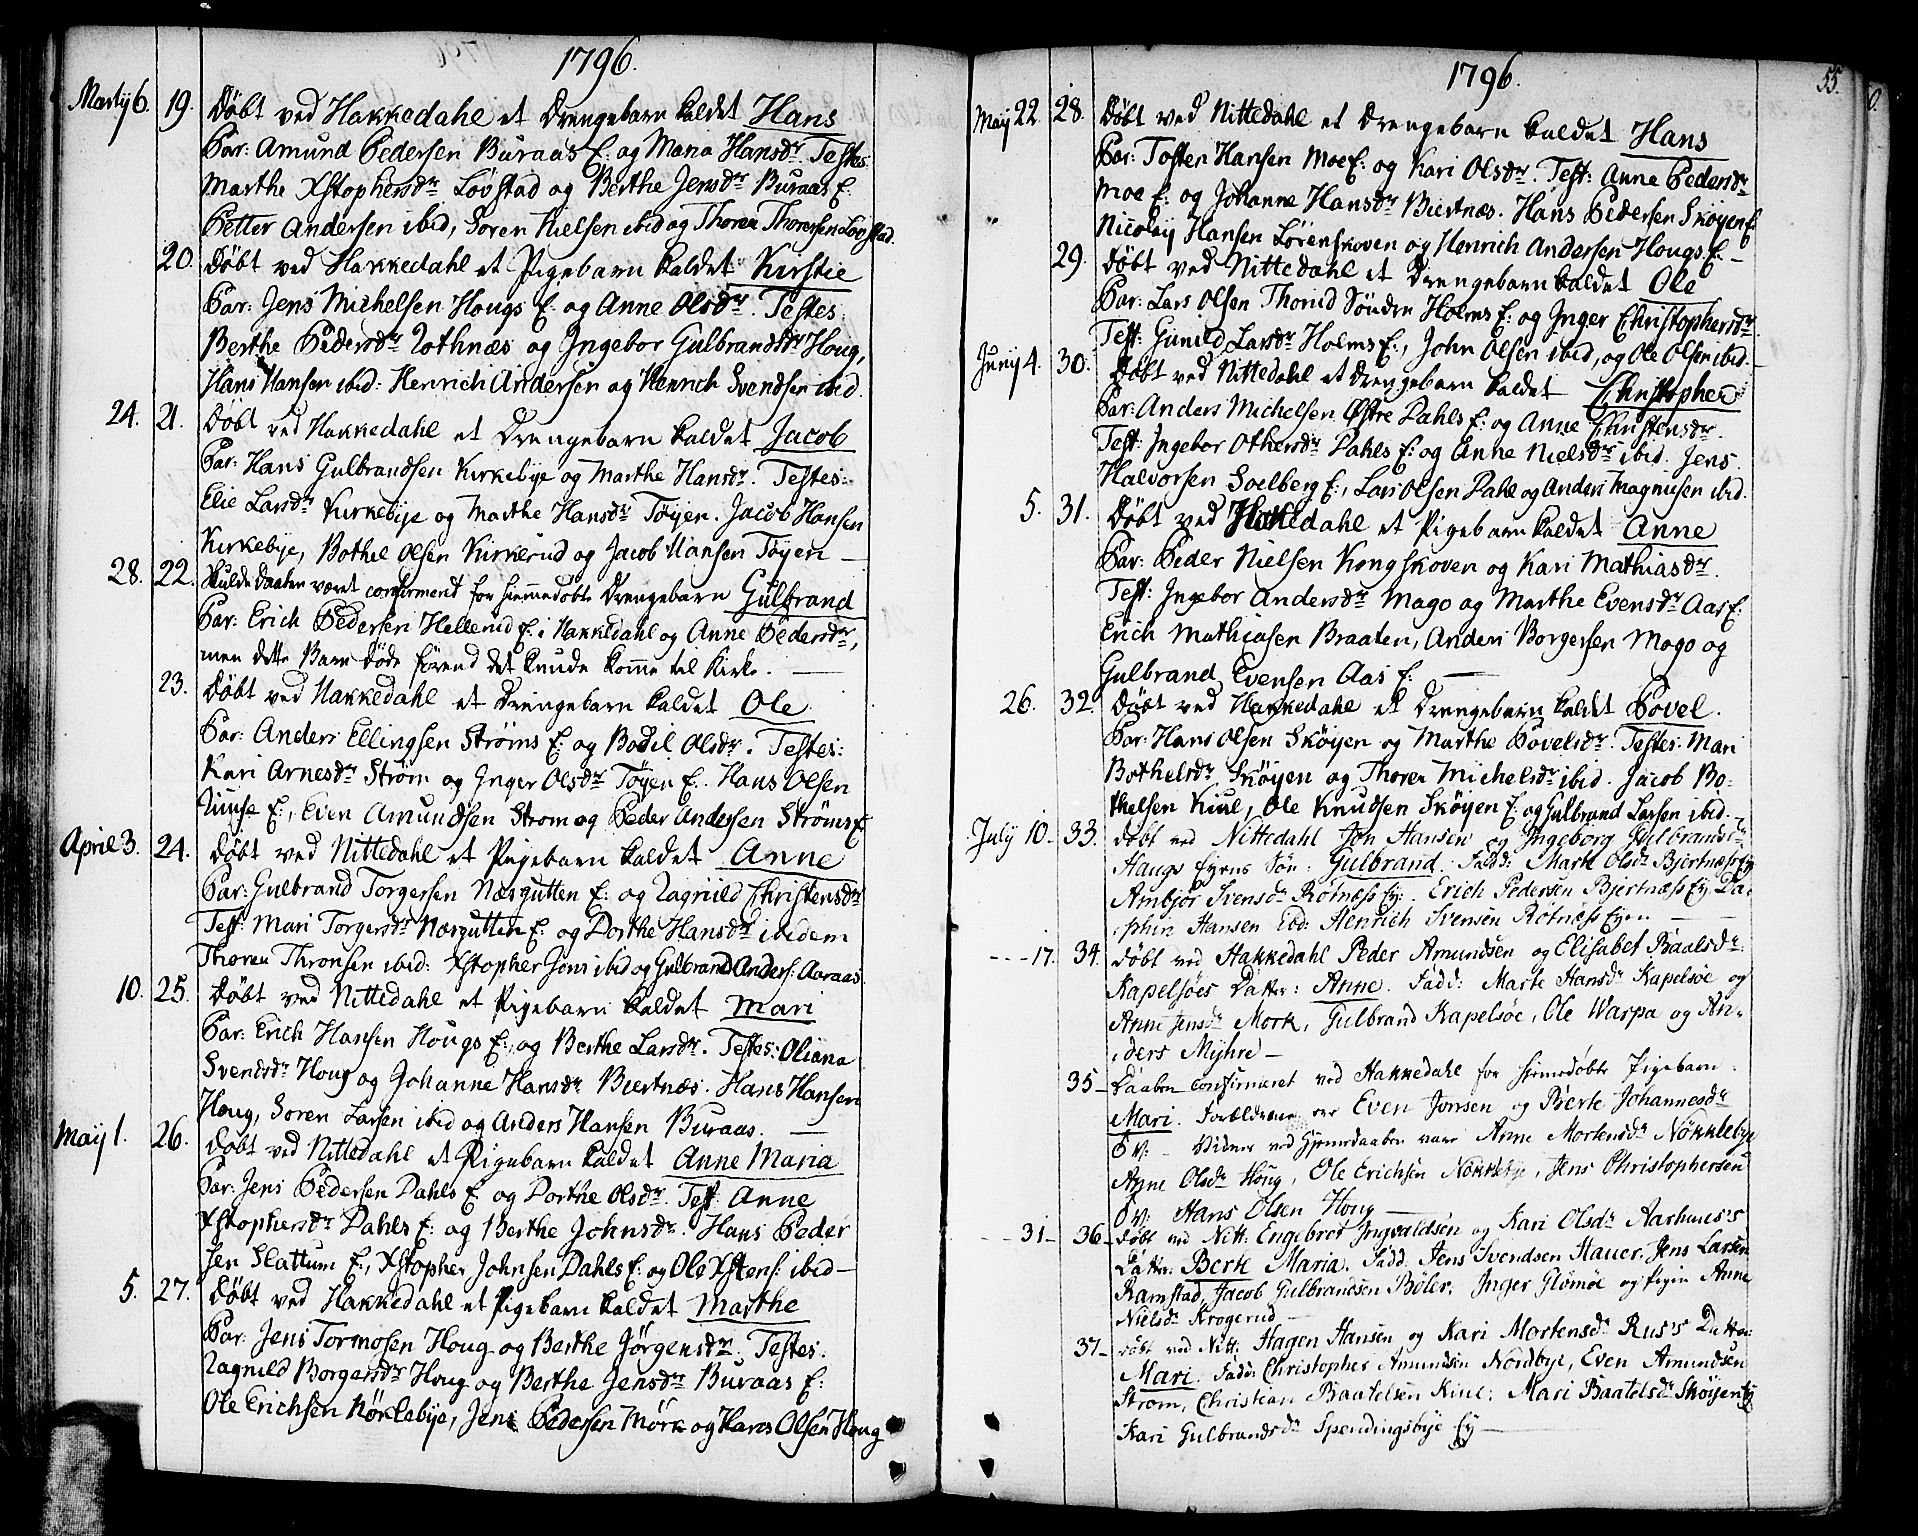 1796.
Martij 6. 19. Døbt ved Hakkedahl et Drengebarn kaldet Hans
Par: Amund Pedersen Buraas E: og Maria Hansdr. Testes:
Marthe Xstophersdr Løvstad og Berthe Jensdr Buraas E.
Petter Andersen ibid, Søren Nielsen ibid og Thoren Thoresen Løvstad.
20. Døbt ved Hakkedahl et Pigebarn kaldet Kirstie
Par: Jens Michelsen Hougs E: og Anne Olsdr. Testes:
Berthe Pedersdr Rothnæs og Ingebor Gulbrandsdr Houg,
Hans Hansen ibid: Henrich Andersen og Henrich Svendsen ibid.
24. 21. Døbt ved Hakkedahl et Drengebarn kaldet Jacob
Par: Hans Gulbrandsen Kirkebye og Marthe Hansdr. Testes:
Elie Larsdr Kirkebye og Marthe Hansdr Tøyen. Jacob Hansen
Kirkebye, Bothel Olsen Kirkerud og Jacob Hansen Tøyen —
28. 22. Skulde Daaben været confirmeret for hiemmedøbte Drengebarn Gulbrand
Par: Erich Pedersen Hellerud E: i Hakkedahl og Anne Pedersdr,
men dette Barn døde førend det kunde komme til Kirke. —
23. Døbt ved Hakkedahl et Drengebarn kaldet Ole
Par: Anders Ellingsen Strøms E: og Bodil Olsdr. Testes:
Kari Arnesdr Strøm og Inger Olsdr Tøyen E. Hans Olsen
E:, Even Amundsen Strøm og Peder Andersen Strøms E
April 3. 24. Døbt ved Nittedahl et Pigebarn kaldet Anne
Par: Gulbrand Torgersen Næsgutten E: og Ragnild Christensdr
Test: Mari Torgersdr Næsgutten E: og Dorthe Hansdr ibidem
Thoren Thronsen ibid: Xstopher Jons ibid og Gulbrand Anders: Aaraas
10. 25. Døbt ved Nittedahl et Pigebarn kaldet Mari
Par: Erich Hansen Hougs E:, og Berthe Larsdr. Testes: Oliana
Svendsdr Houg og Johanne Hansdr Biertnæs. Hans Hansen
Houg, Søren Larsen ibid og Anders Hansen Buraas. —
May 1. 26. Døbt ved Nittedahl et Pigebarn kaldet Anne Maria
Par: Jens Pedersen Dahls E: og Dorthe Olsdr. Test: Anne
Xstophersdr Dahls E: og Berthe Johnsdr. Hans Peder
sen Slattum E:, Xstopher Johnsen Dahls E: og Ole Xstens: ibid —
5. 27. Døbt ved Hakkedahl et Pigebarn kaldet Marthe
Par: Jens Tormosen Houg og Berthe Jørgensdr. Testes:
Ragnild Borgersdr Houg og Berthe Jensdr Buraas E:
Ole Erichsen Nøklebye, Jens Pedersen Mørk og Hans Olsen Houg
1796. 55.
May 22. 28. Døbt ved Nittedahl et Drengebarn kaldet Hans
Par: Tosten Hansen Moe E: og Kari Olsdr. Test: Anne Pedersdr
Moe E: og Johanne Hansdr Biertnæs. Hans Pedersen Skøyen E:
Nicolay Hansen Lørenskoven og Henrich Andersen Hougs E: —
29. Døbt ved Nittedahl et Drengebarn kaldet Ole
Par: Lars Olsen Thorud Søndre Holms E: og Inger Christophersdr
Test: Gunild Larsdr Holms E:, John Olsen ibid, og Ole Olsen ibid.
Junij 4. 30. Døbt ved Nittedahl et Drengebarn kaldet Christopher
Par: Anders Michelsen Østre Dahls E: og Anne Christensdr.
Test: Ingebor Othersdr Dahls E: og Anne Nielsdr ibid. Jens
Halvorsen Soelberg E:, Lars Olsen Dahl og Anders Magnusen ibid.
5. 31. Døbt ved Hakkedahl et Pigebarn kaldet Anne
Par: Peder Nielsen Kongskoven og Kari Mathiasdr.
Test: Ingebor Andersdr Mago og Marthe Evensdr Aas E:
Erich Mathiasen Braaten, Anders Borgersen Mogo og
Gulbrand Evensen Aas E: —
26. 32. Døbt ved Hakkedahl et Drengebarn kaldet Povel.
Par: Hans Olsen Skøyen og Marthe Povelsdr. Testes: Mari
Bothelsdr Skøyen og Thoren Michelsdr ibid. Jacob Bo-
thelsen Kiul, Ole Knudsen Skøyen E: og Gulbrand Larsen ibid. —
July 10. 33. døbt ved Nittedahl Jon Hansen og Ingeborg Gulbrandsdr
Haugs Eyens Søn: Gulbrand. Fadd: Marte Olsdr Bjertnæss Ey
Ambjør Svensdr Rotnæss Ey. Erich Pedersen Bjertnæss Ey Da-
phin Hansen Ibd: Henrich Svensen Rotnæss Eyen — —
17. 34. døbt ved Hakkedahl Peder Amundsen og Elisabet Paalsdr:
Kapelsøes Datter: Anne. Fadd: Marte Hansdr Kapelsøe og
Anne Jensdr Mork, Gulbrand Kapelsøe, Ole Warpa og An-
ders Myhre —
35 — Daaben confirmeret ved Hakkedahl for hiemedøbte Pigebarn
Mari. Forældrene ere Even Jonsen og Berte Johannesdr
Ey: — Vidner ved Hjemedaaben vare Anne Mortensdr Nøkklebye
Anne Olsdr Houg, Ole Erichsen Nøkkebye, Jens Christophersen
Ey: Hans Olsen Houg —
31 — 36 — døbt ved Nitt. Engebret Ingvaldsen og Kari Olsdr Aarhuus's
Datter: Berte Maria. Fadd. Jens Svendsen Hauer. Jens Larsen
Ramstad, Jacob Gulbrandsen Bøler, Inger Glømøe og Pigen Anne
Nielsdr Krogerud —
37 — døbt ved Nitt: Hagen Hansen og Kari Mortensdr Rus's Datter:
Mari. Fadd: Christopher Amundsen Nordbye, Even Amundsen
Strøm, Christian Baatelsen Kiul; Mari Baatelsdr Skøyen Ey
Kari Gulbrandsdr Spendingsbye Ey —